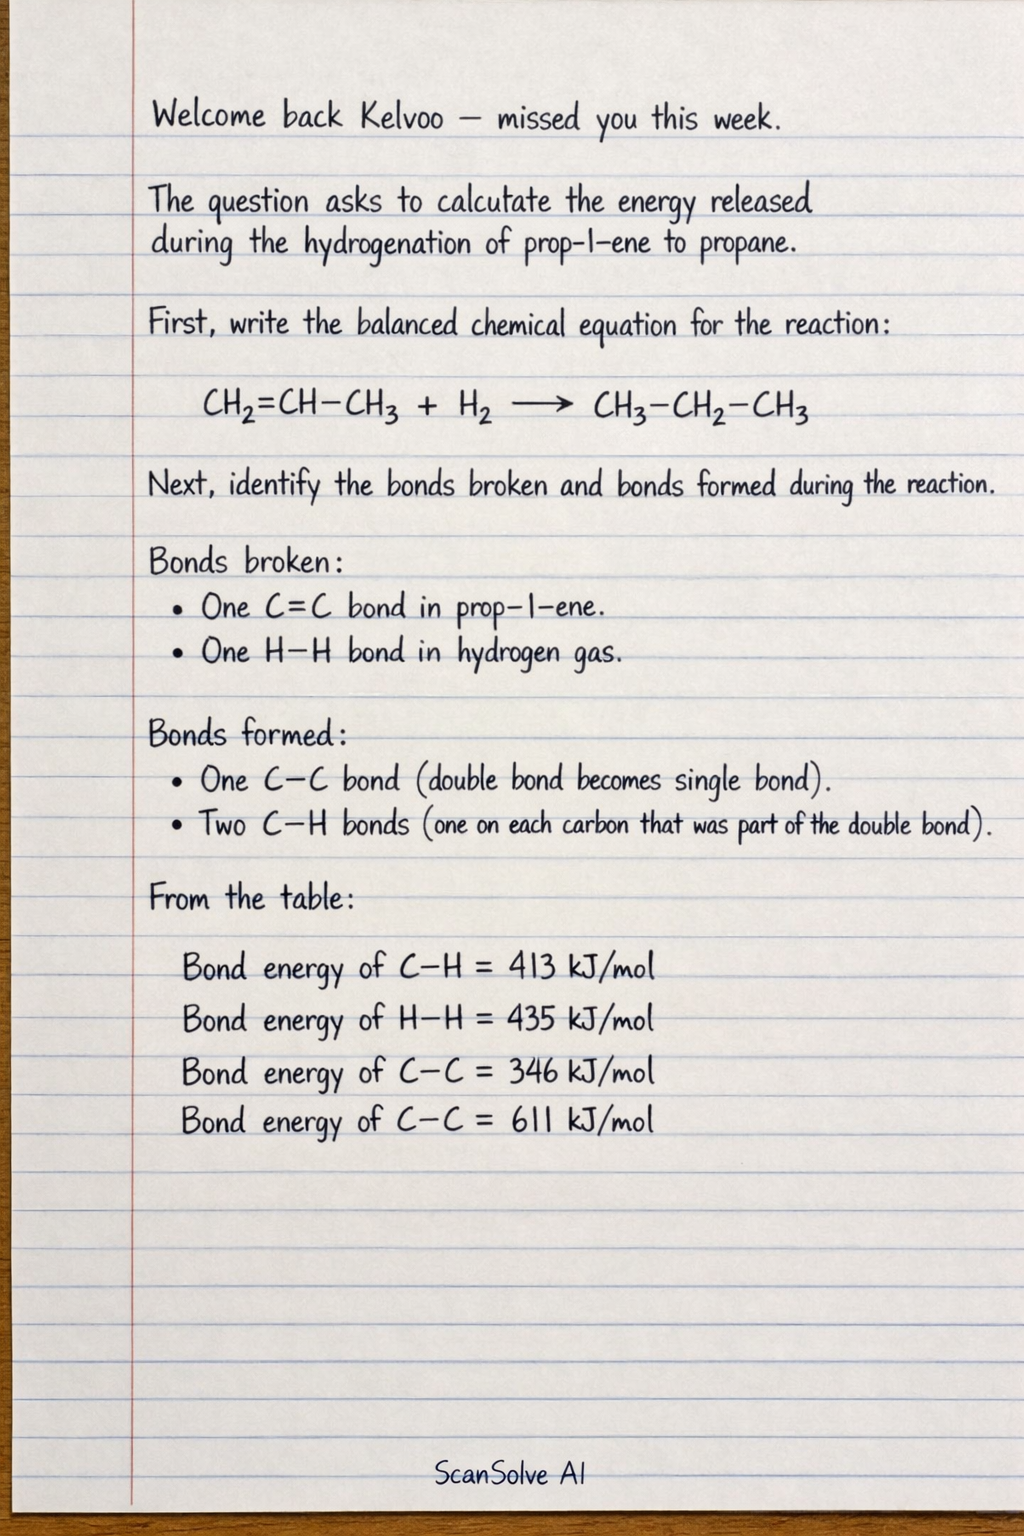 Welcome back Kelvoo – missed you this week.
The question asks to calcutate the energy released
during the hydrogenation of prop-1-ene to propane.
First, write the balanced chemical equation for the reaction:
CH₂=CH–CH₃ + H₂ ⟶ CH₃–CH₂–CH₃
Next, identify the bonds broken and bonds formed during the reaction.
Bonds broken:
• One C=C bond in prop-1-ene.
• One H–H bond in hydrogen gas.
Bonds formed:
• One C–C bond (double bond becomes single bond).
• Two C–H bonds (one on each carbon that was part of the double bond).
From the table:
Bond energy of C–H = 413 kJ/mol
Bond energy of H–H = 435 kJ/mol
Bond energy of C–C = 346 kJ/mol
Bond energy of C–C = 611 kJ/mol
ScanSolve AI